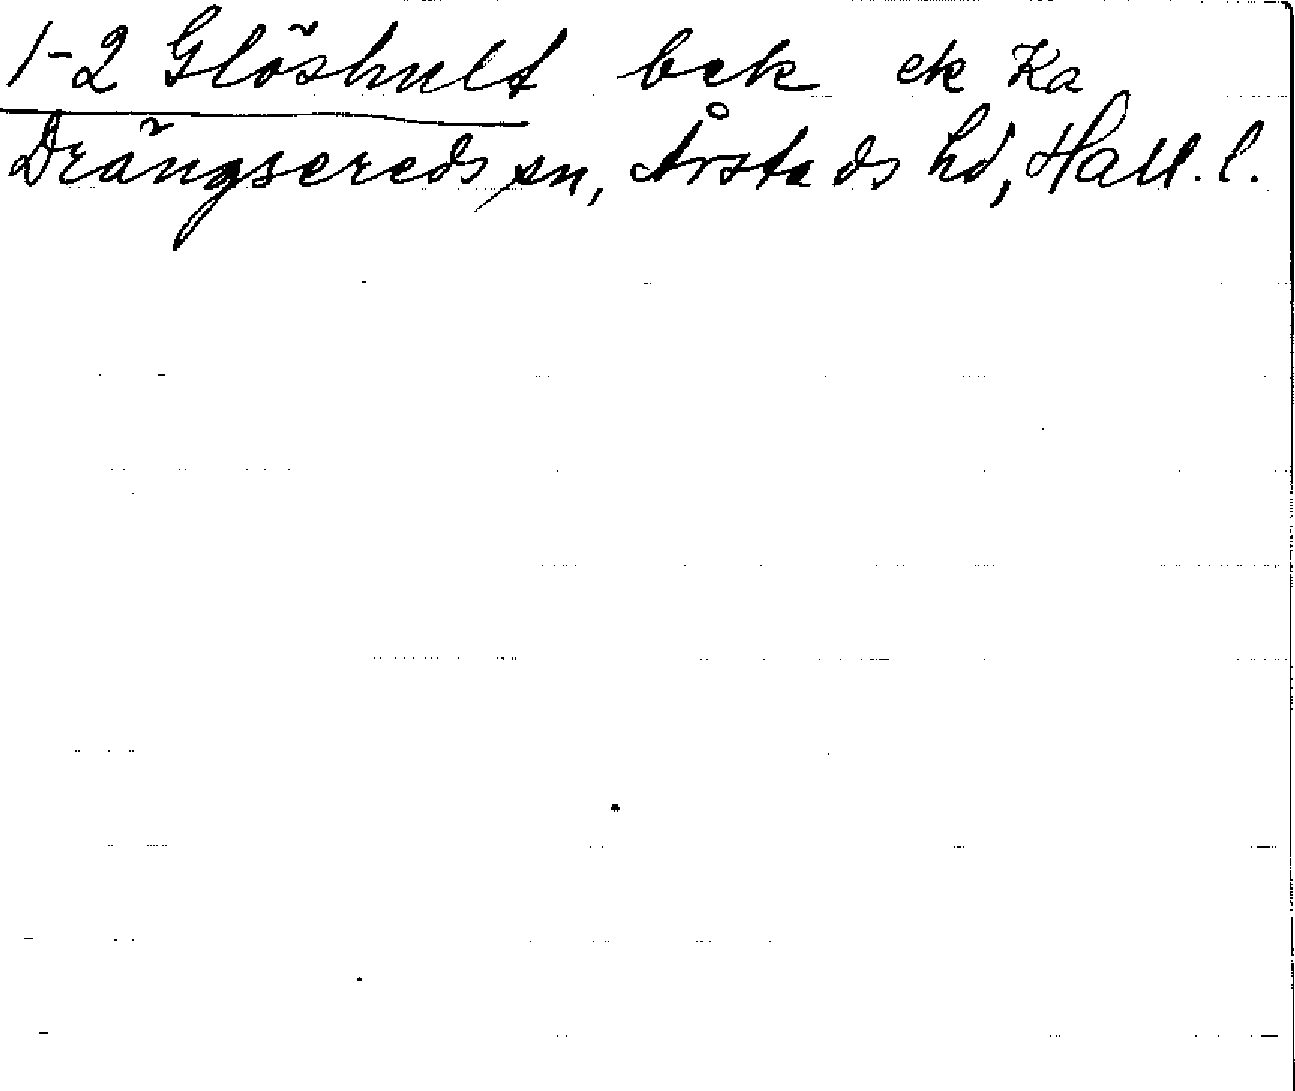 1-2 Glöshult bek ek Ka
Drängsereds sn, Årstads hd, Hall. l.